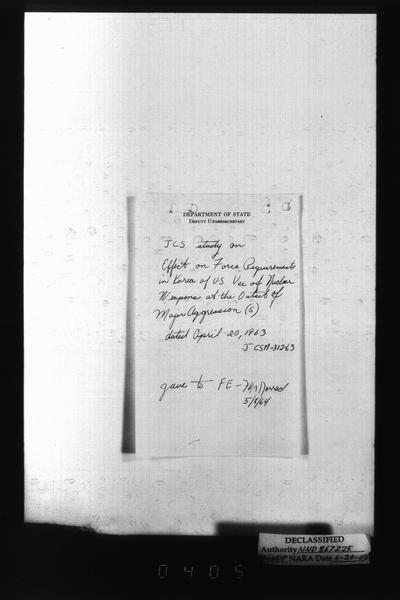 DEPARTMENT OF STATE
DEPUTY UNDERSECRETARY
JCS study on
Effect on Force Requirements
in Korea of US Use of Nuclear
Weapons at the Outset of
Major Aggression (S)
dated April 20, 1963
JCSM-31263
gave to FE - Mr
5/8/64
DECLASSIFIED
Authority NND 867225
NARA Date 6-20-02
0405